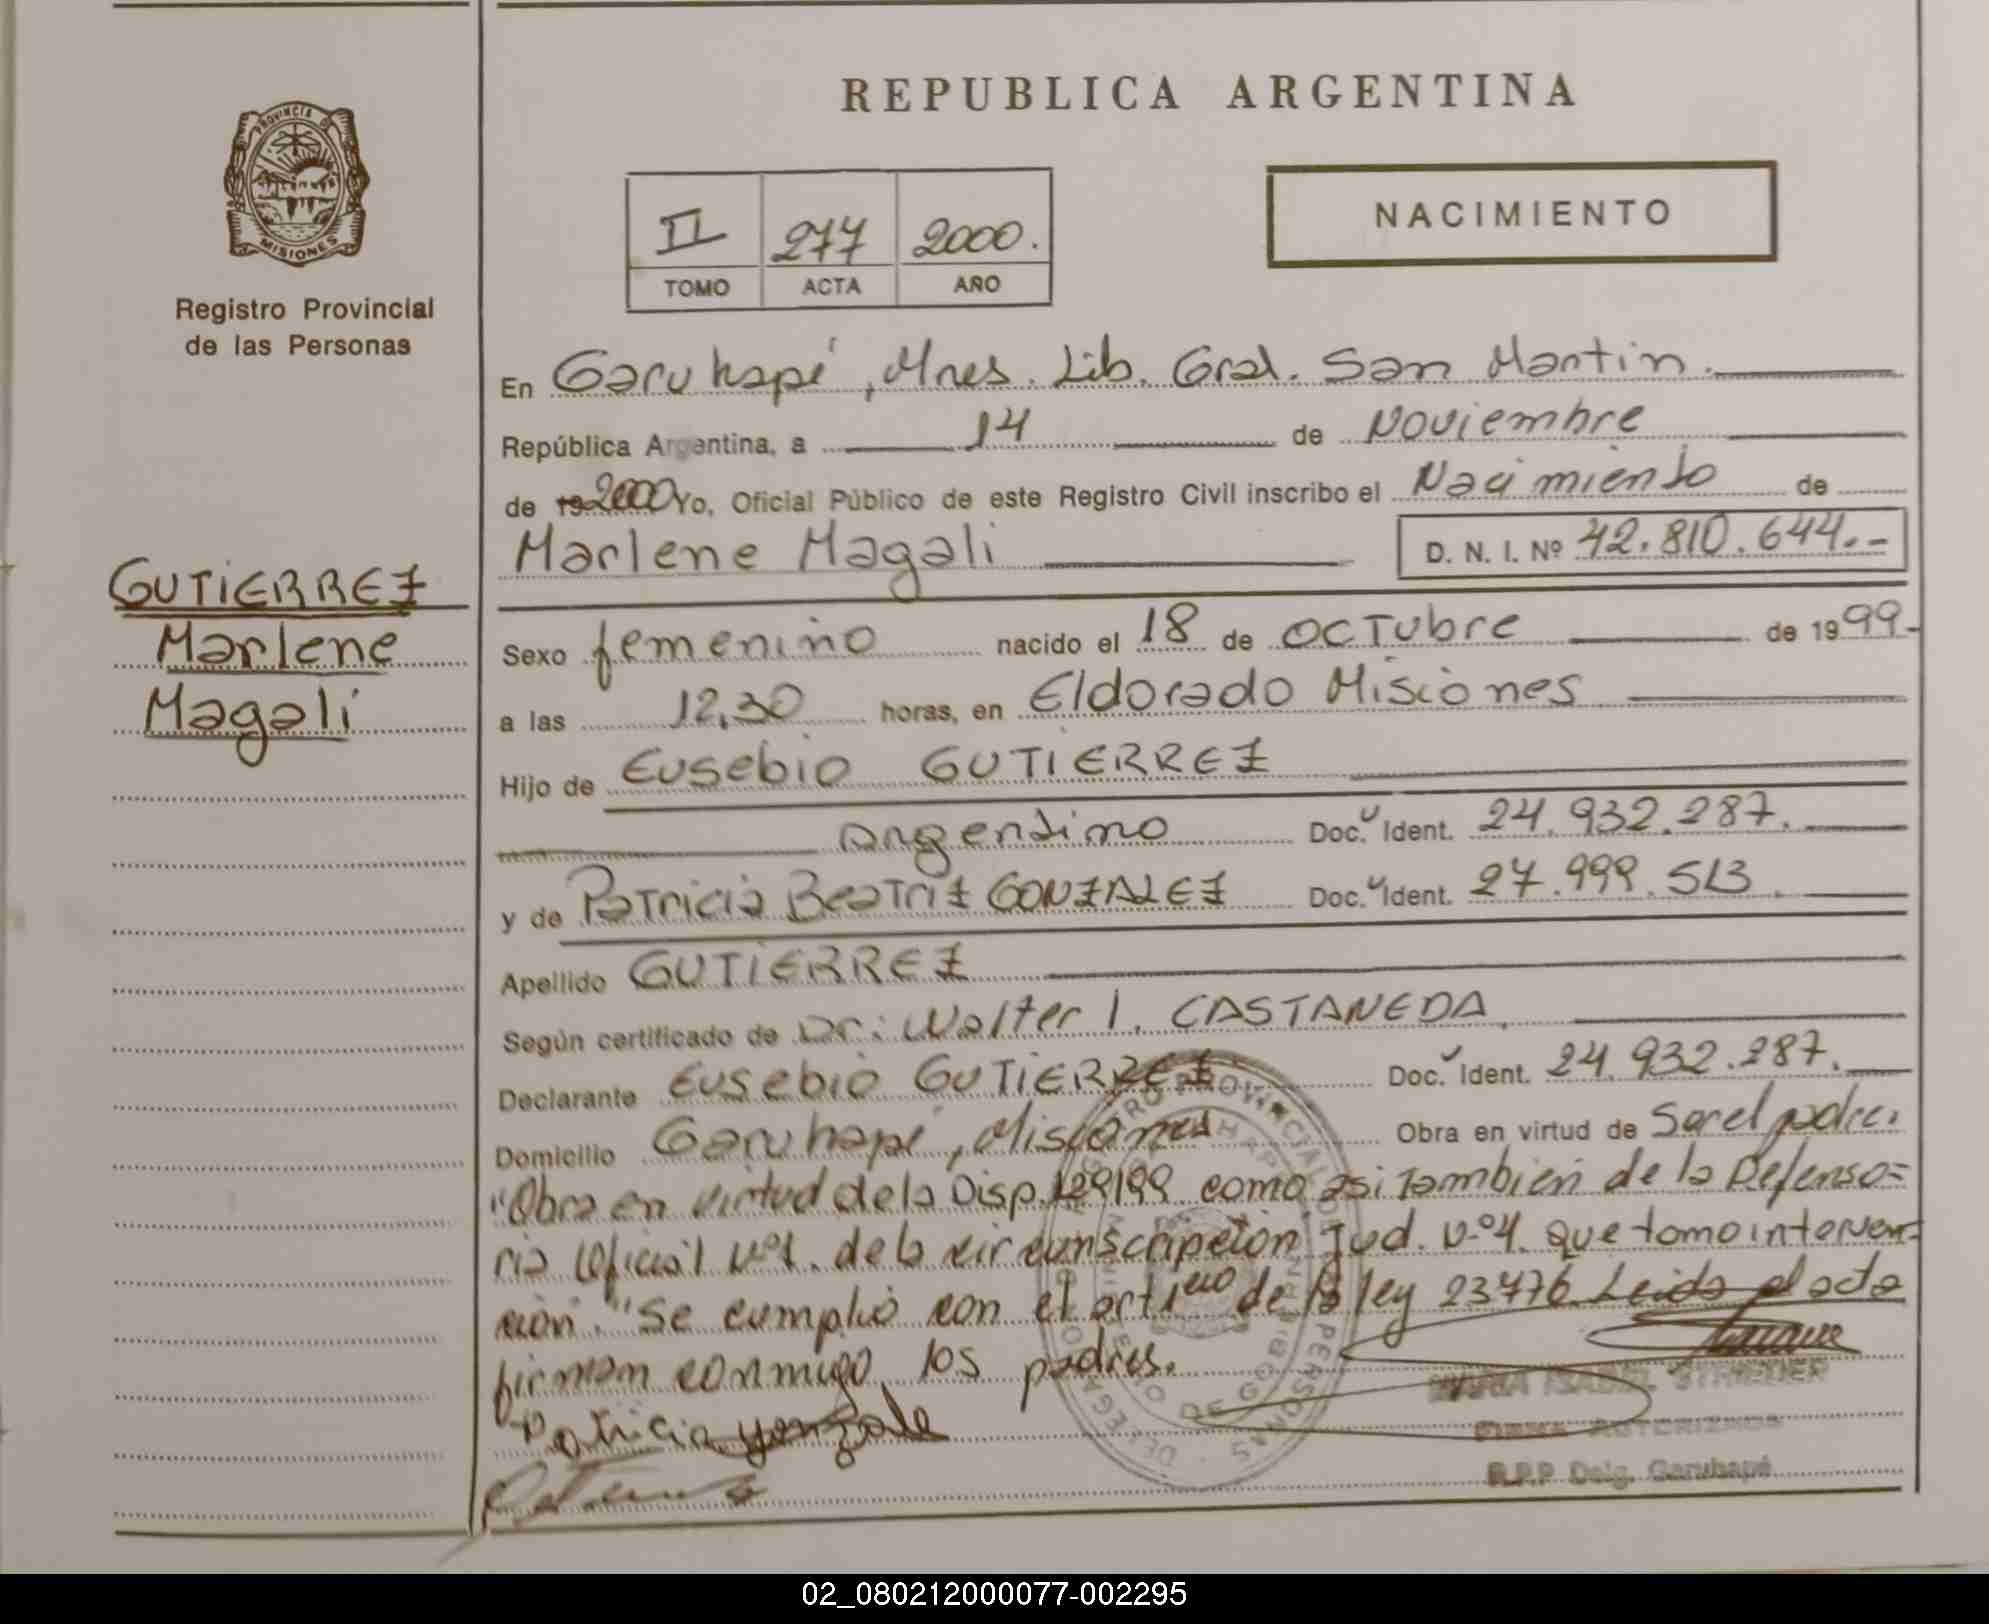 REPUBLICA ARGENTINA
PROVINCIA DE
MISIONES
Registro Provincial
de las Personas
II 277 2000.
TOMO ACTA AÑO
NACIMIENTO
En Garuhapé, Mnes. Lib. Gral. San Martin.
República Argentina, a 14 de Noviembre
de 19 2000 Yo, Oficial Público de este Registro Civil inscribo el Nacimiento de
Marlene Magali D. N. I. Nº 42.810.644.-
GUTIERREZ
Marlene
Magali
Sexo femenino nacido el 18 de OCTubre de 1999-
a las 12,30 horas, en Eldorado Misiones
Hijo de Eusebio GUTIERREZ
argentino Doc. Ident. 24.932.287.
y de Patricia Beatriz GONZALEZ Doc. Ident. 27.999.513.
Apellido GUTIERREZ
Según certificado de Dr: Walter I. CASTANEDA.
Declarante Eusebio GUTIERREZ Doc. Ident. 24.932.287.
Domicilio Garuhapé, Misiones Obra en virtud de Ser el padre.
"Obra en virtud de la Disp. 129/99 como asi Tambien de la Defenso=
ria Oficial Nº1. de la circunscripción Jud. Nº4. que tomo interven-
ción." Se cumplió con el art 1ero de la ley 23776. Leida el acta
firman conmigo los padres.
Patricia Gonzale
MARIA ISABEL
FIRMA AUTORIZADA
R.P.P Delg. Garuhapé
02_080212000077-002295